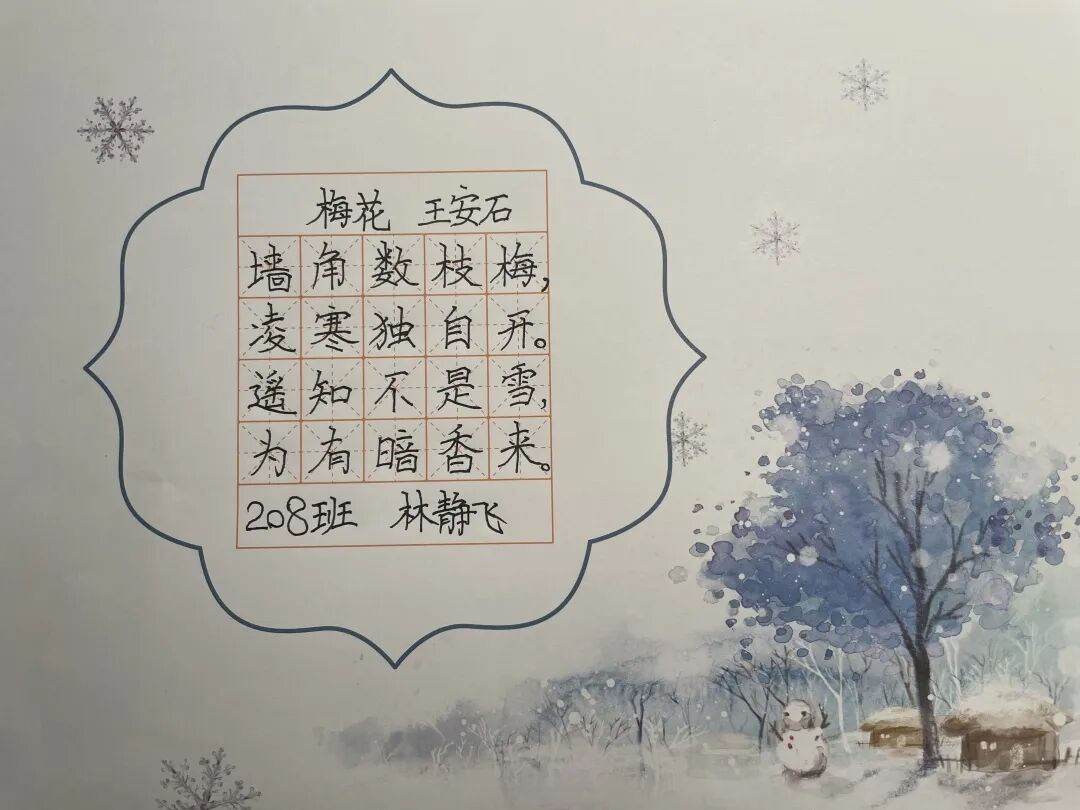 梅花 王安石
墙角数枝梅,
凌寒独自开。
遥知不是雪,
为有暗香来。
208班 林静飞